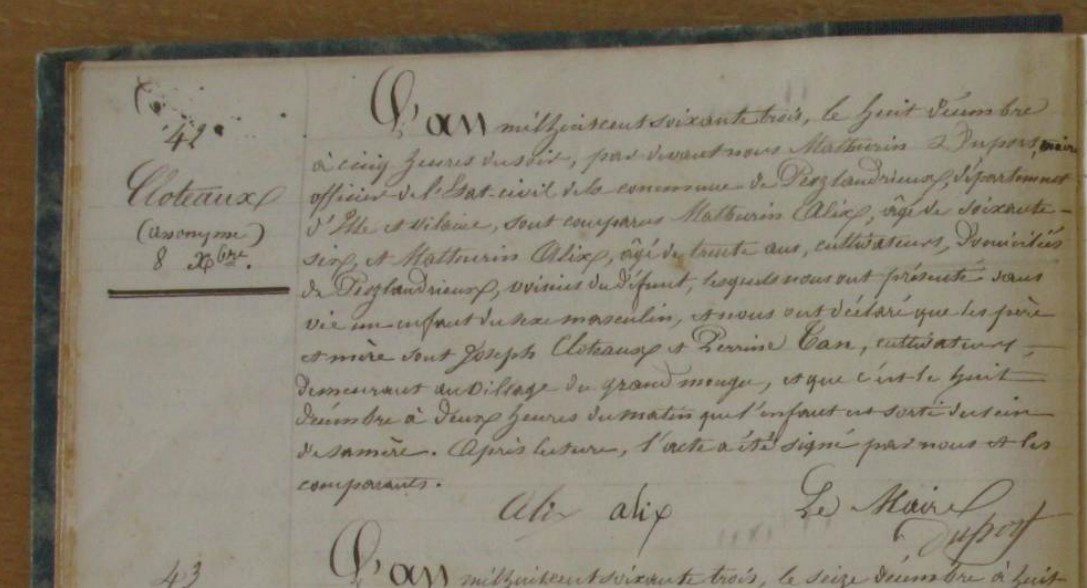 42
Cloteaux
(anonyme)
8 Xbre.
L'an mil huit cent soixante trois, le huit décembre
à cinq heures du soir, par devant nous Mathurin Duport, maire
officier de l'Etat-civil de la commune de Pleslandrieux, département
d'Ille et Vilaine, sont comparus Mathurin Alix, âgé de soixante-
six, et Mathurin Alix, âgé de trente ans, cultivateurs, domiciliés
de Pleslandrieux, voisins du défunt, lesquels nous ont présenté sans
vie un enfant du sexe masculin, et nous ont déclaré que les père
et mère sont Joseph Cloteaux et Perrine Tan, cultivateurs,
demeurant au village du grand mougu, et que c'est le huit
décembre à deux heures du matin que l'enfant est sorti du sein
de sa mère. Après lecture, l'acte a été signé par nous et les
comparants.
Alix alix Le Maire
Duport
43
L'an mil huit cent soixante trois, le seize décembre à huit